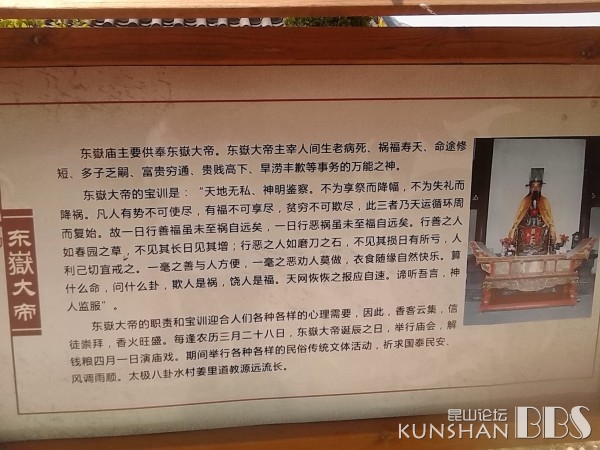 东嶽大帝
东嶽庙主要供奉东嶽大帝。东嶽大帝主宰人间生老病死、祸福寿夭、命途修
短、多子乏嗣、富贵穷通、贵贱高下、旱涝丰歉等事务的万能之神。
东嶽大帝的宝训是：“天地无私、神明鉴察。不为享祭而降福，不为失礼而
降祸。凡人有势不可使尽，有福不可享尽，贫穷不可欺尽，此三者乃天运循环周
而复始。故一日行善福虽未至祸自远矣，一日行恶祸虽未至福自远矣。行善之人
如春园之草，不见其长日见其增；行恶之人如磨刀之石，不见其损日有所亏，人
利己切宜戒之。一毫之善与人方便，一毫之恶劝人莫做，衣食随缘自然快乐。算
什么命，问什么卦，欺人是祸，饶人是福。天网恢恢之报应自速。谛听吾言，神
人监服”。
东嶽大帝的职责和宝训迎合人们各种各样的心理需要，因此，香客云集，信
徒崇拜，香火旺盛。每逢农历三月二十八日，东嶽大帝诞辰之日，举行庙会，解
钱粮四月一日演庙戏。期间举行各种各样的民俗传统文体活动，祈求国泰民安、
风调雨顺。太极八卦水村姜里道教源远流长。
昆山论坛
KUNSHAN BBS